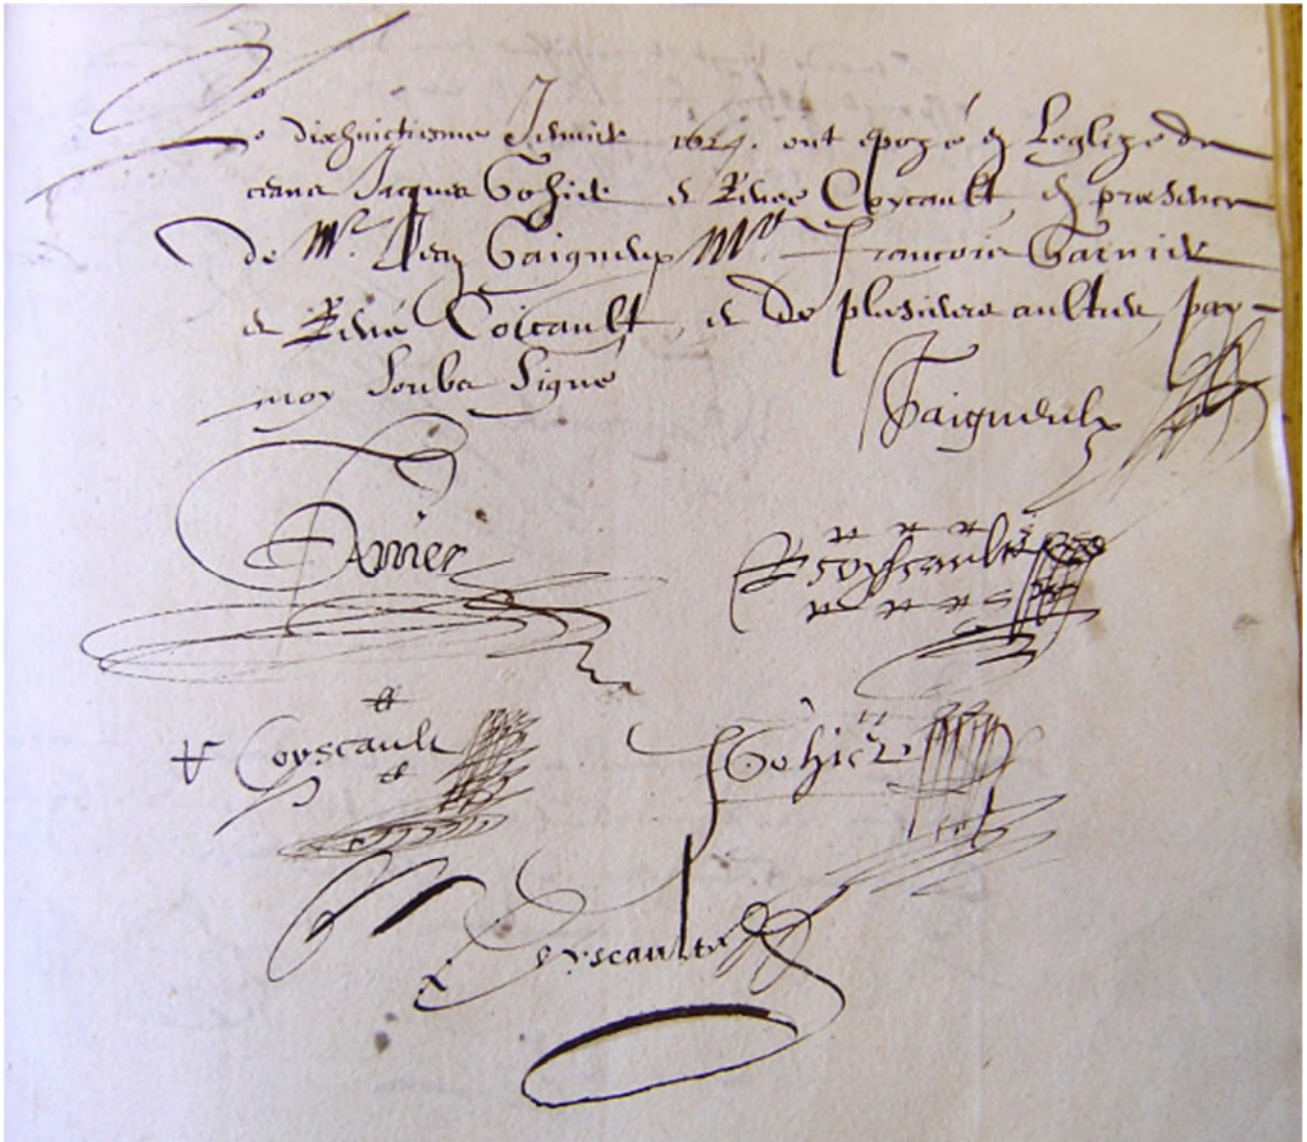 Le dixhuictiesme Jenvier 1624. ont epozé en Leglize de
ceans Jacques Gohier et Renee Coycault, en presence
de Mr. Jean Gaigneux Mre. Francois Garnier
et René Coicault, et de plusieurs aultres par
moy soubs signé
Gaigneulx
Coyscault
Coyscault
Gohier
Coyscault